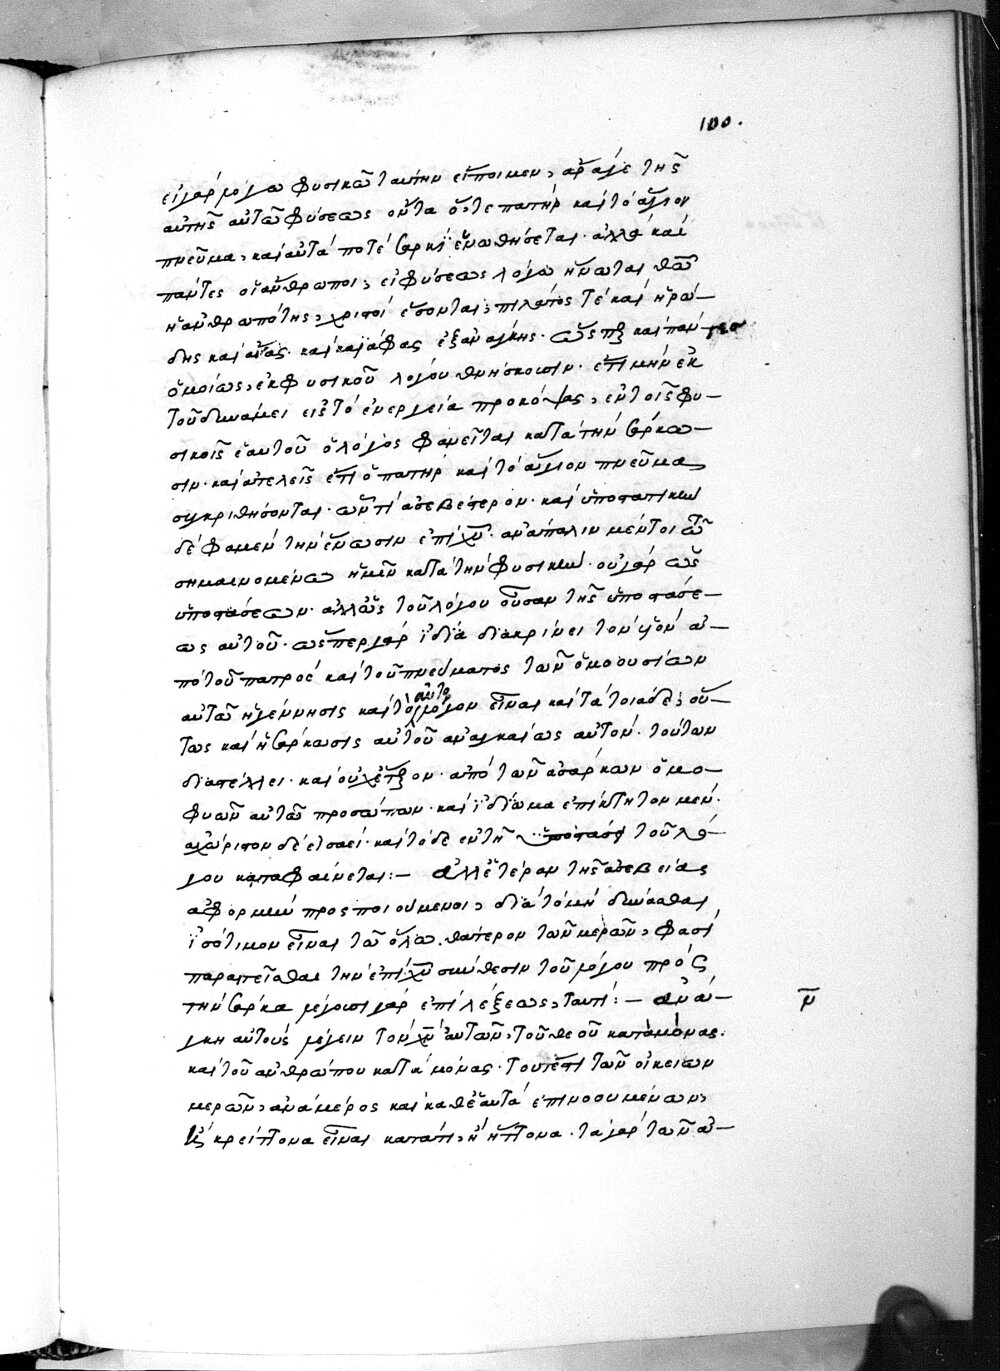 100.
εἰ γὰρ λόγω φυσικῶ ταύτην εἴποιμεν, ἆρα γε τῆς
αὐτῆς αὐτῶ φύσεως ὄντα ὅ, τε πατὴρ καὶ τὸ ἅγιον
πνεῦμα, καὶ αὐτά ποτέ σαρκὶ ἑνωθήσεται. ἀλλὰ καὶ
πάντες οἱ ἄνθρωποι, εἰ φύσεως λόγω ἥνωται θεῶ
ἡ ἀνθρωπότης, χριστοὶ ἔσονται, πιλάτος τὲ καὶ ἡρώ-
δης καὶ καϊάφας ἐξανάγκης. ὥσπερ καὶ πάντες
ὁμοίως, ἐκ φυσικοῦ λόγου θνήσκουσιν. ἔτι μὴν ἐκ
τοῦ δυνάμει εἰς τὸ ἐνεργεία προκόψας, ἐν τοῖς φυ-
σικοῖς ἑαυτοῦ ὁ λόγος φανεῖται κατὰ τὴν σάρκω-
σιν. καὶ ἀτελεῖς ἔτι ὁ πατὴρ καὶ τὸ ἅγιον πνεῦμα
συγκριθήσονται. ὧν τί ἀσεβέστερον. καὶ ὑποστατικὴν
δέ φαμεν τὴν ἕνωσιν ἐπὶ χ̅υ̅. ἀνάπαλιν μέντοι τῶ
σημαινομένω ἡμῖν κατὰ τὴν φυσικήν. οὐ γὰρ ὡς
ὑποστάσεων. ἀλλ' ὡς τοῦ λόγου οὖσαν τῆς ὑποστάσε-
ως αὐτοῦ. ὥσπερ γὰρ ἰδία διακρίνει τὸν υἱὸν ἀ-
πὸ τοῦ πατρός καὶ τοῦ πνεύματος τῶν ὁμοουσίων
αὐτῶ ἡ γέννησις καὶ τὸ αὐτὸ λόγον εἶναι καὶ τὰ τοιάδε; οὕ-
τως καὶ ἡ σάρκωσις αὐτοῦ ἀναγκαίως αὐτὸν. τούτων
διαστέλλει. καὶ οὐχ ἕτερον. ἀπὸ τῶν ἀσάρκων ὁμο-
φυῶν αὐτῶ προσώπων. καὶ ἰδίωμα ἐπίκτητον μέν.
ἀχώριστον δὲ εἰσαεί. καὶ τόδε ἐν τῆ ὑποστάσει τοῦ λό-
γου καταφαίνεται:- Ἀλλ' ἑτέραν τῆς ἀσεβείας
ἀφορμὴν προσποιούμενοι, διὰ τὸ μὴ δύνασθαι
ἰσότιμον εἶναι τῶ ὅλω. θάτερον τῶν μερῶν, φασὶ
παραιτεῖσθαι τὴν ἐπὶ χ̅υ̅ σύνθεσιν τοῦ λόγου πρὸς
τὴν σάρκα λέγουσι γὰρ ἐπὶ λέξεως, ταυτί:- Ἀνάγ-
κη αὐτοὺς λέγειν τὸν χ̅ν̅ ἀυτῶν, τοῦ θεοῦ καταμόνας.
καὶ τοῦ ἀνθρώπου καταμόνας. τουτέστι τῶν οἰκείων
μερῶν, ἀνα μέρος καὶ καθ' ἑαυτὰ ἐπινοουμένων,
ἢ κρείττονα εἶναι κατά τι, ἢ ἥττονα. τὰ γὰρ τῶν ἀ-